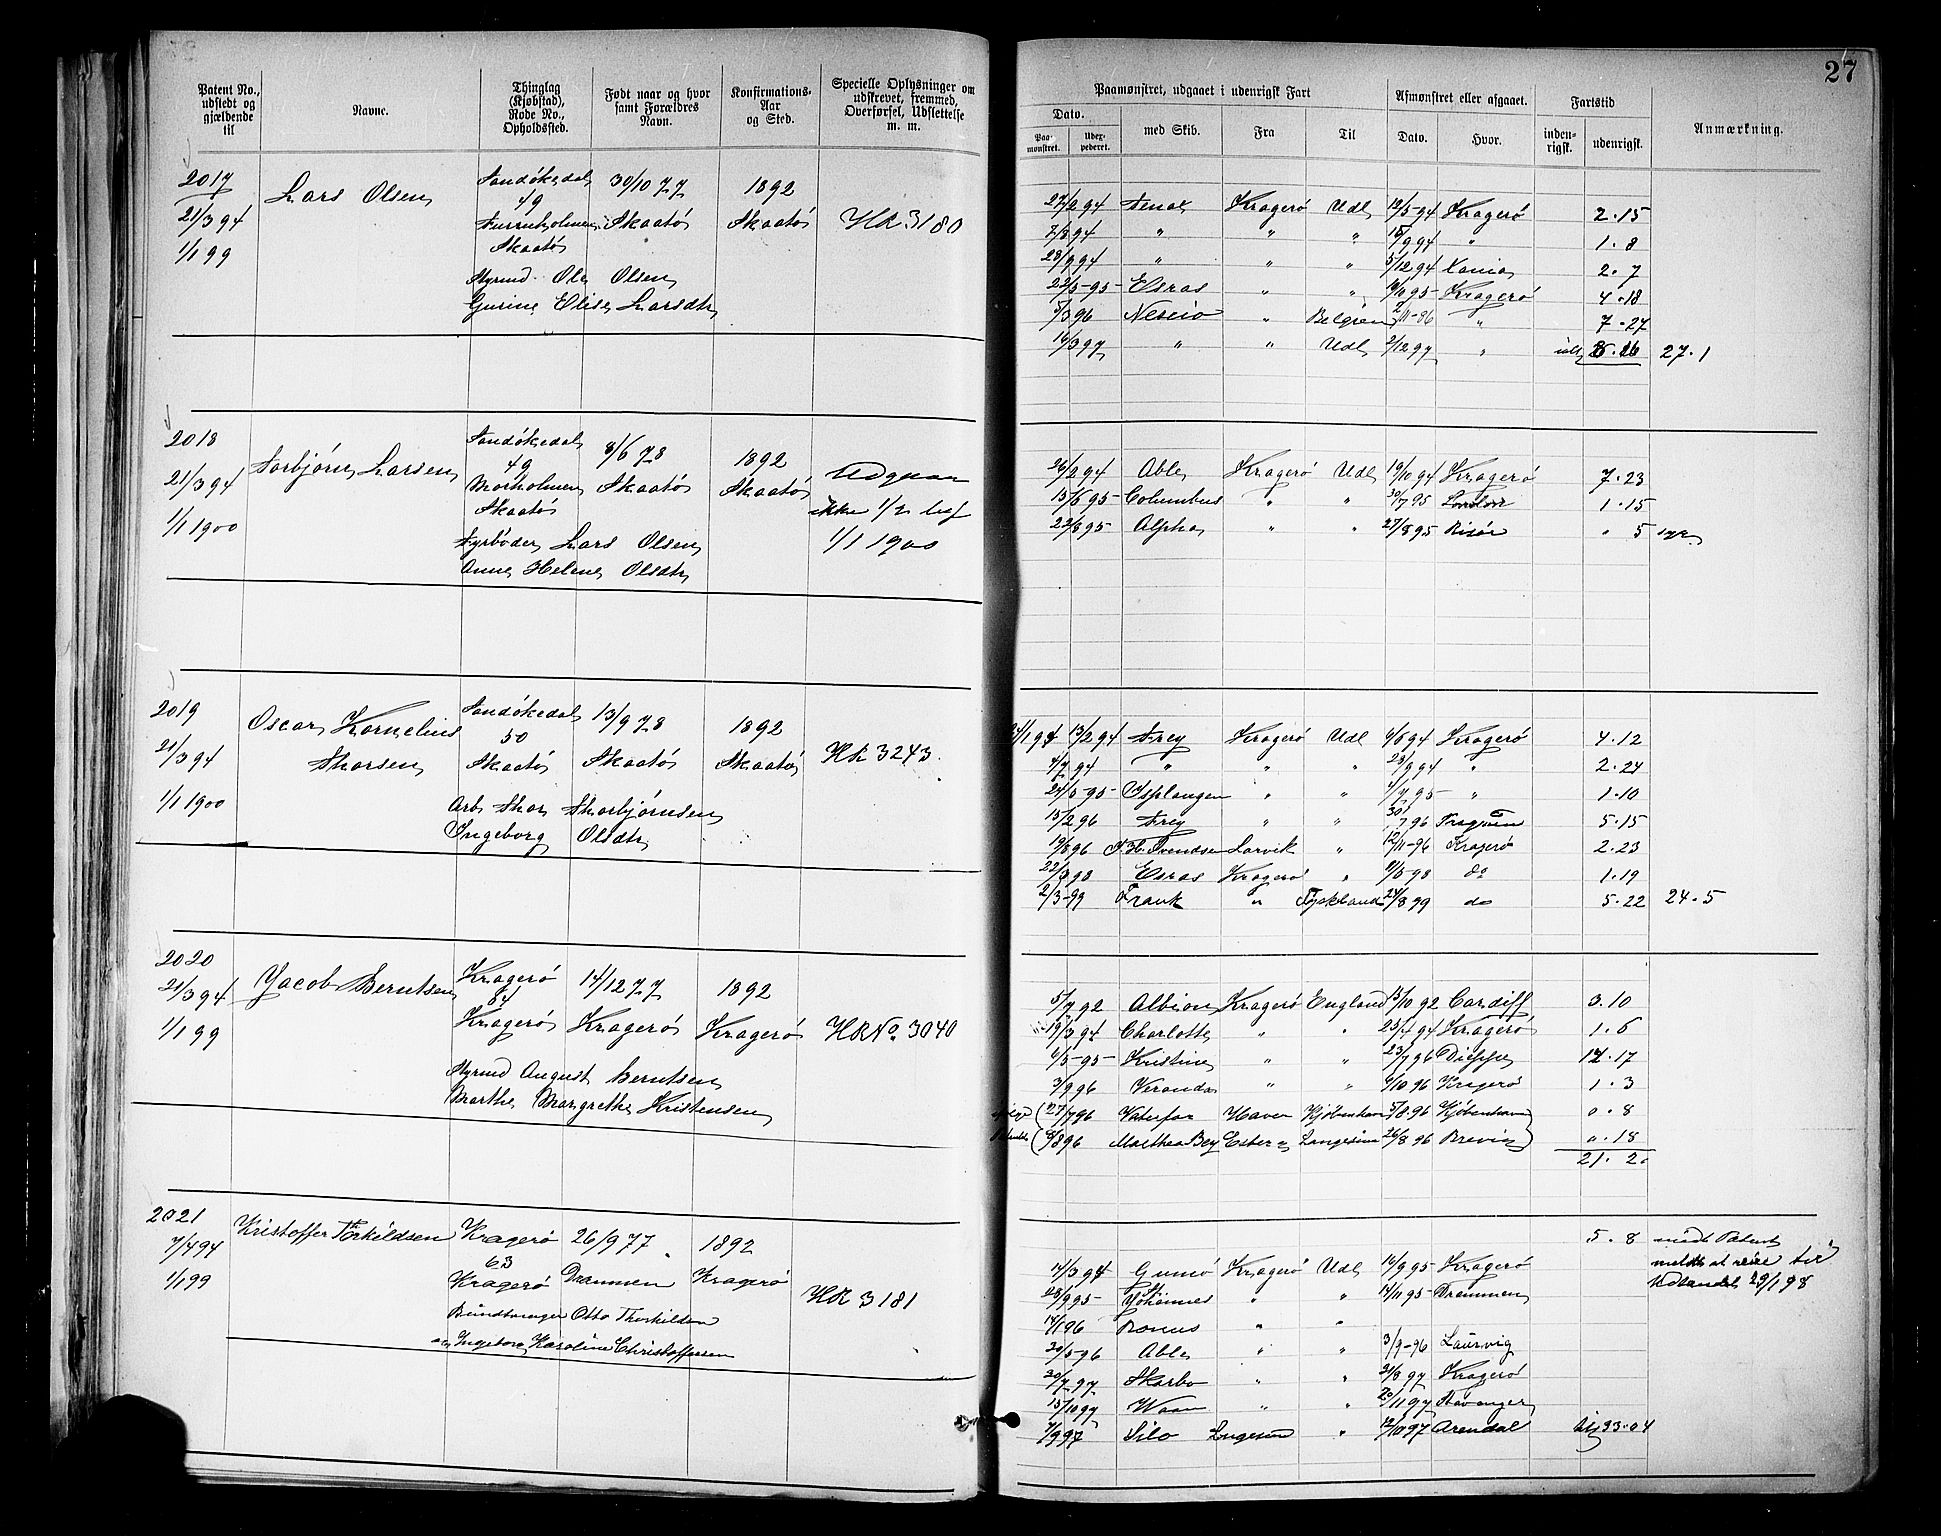 27
Patent No., udstedt og gjældende til
Navne.
Thinglag (Kjøbstad), Rode No., Opholdssted.
Født naar og hvor samt Forældres Navn.
Konfirmations, Aar og Sted.
Specielle Oplysninger om udskrevet, fremmed, Overførsel, Udslettelse m. m.
Paamønstret, udgaaet i udenrigsk Fart
Afmønstret eller afgaaet.
Fartstid
Anmærkning.
Dato.
Paa-mønstret.
Udex-pederet.
med Skib.
Fra
Til
Dato.
Hvor.
inden-rigsk.
udenrigsk.
2017 Lars Olsen Sandökedal 30/10 77 1892
49
21/3 94 Furuholmen Skaatö Skaatö HR 3180
Skaatö
1/1 99
Styrmd Ole Olsen
Gurine Elise Larsdtr
27/2 94 Kragerö Udl 12/5-94 Kragerö 2.15
7/8 94 " " " 15/9 94 " 1.8
23/9 94 " " " 5/12 94 Xania 2.7
22/5-95- Esras " " Kragerö 4.18
5/3 96 " Belgien 2/11-86 " 7.27
16/3 97 " " Udl 2/12 97 " 27.1
2018 Torbjörn Larsen Sandökedal 8/6 78 1892
49
21/3 94 Skaatö Skaatö Udgaar
Skaatö ikke 1/2 bef
1/1 1900 1/1 1900
Fyrböder Lars Olsen
Anne Helene Olsdtr
26/2 94 Able Kragerö Udl 19/10 94 Kragerö 7.23
15/6 95- Columbus " " 30/7 95 London 1.15
22/8 95- Alpha " " 27/8 95 Risör " 5
2019 Oscar Kornelius Sandökedal 13/9 78 1892
50
21/3 94 Thorsen Skaatö Skaatö Skaatö HR 3243.
1/1 1900 Arb. Thor Thorbjörnsen
Ingeborg Olsdtr
13/2 94 Frey Kragerö Udl 4/6 94 Kragerö 4.12
4/7 94 " " " 28/9 94 " 2.24
24/5-95- " " 4/7 95- " 1.10
15/2 96 Frey " " 30/7 96 5.15
19/8 96 Larvik " 12/11-96 Kragerö 2.23
22/3 98 Esras Kragerö " 11/5-98 do 1.19
2/3-99 Frank " Tyskland 24/8 99 do 5.22 24.5
2020 Jacob Berntsen Kragerö 14/12 77 1892
21/3 94 84
1/1 99 Kragerö Kragerö Kragerö HR No. 3040
Styrmd August Berntsen
Marthe Margrethe Kristensen
5/7 92 Albion Kragerö England 15/10 92 Cardiff 3.10
19/3 94 Charlotte " " 25/4 94 Kragerö 1.6
6/5-95- Kristine " " 23/7 96 Dieppe 14.17
3/9 96 Veranda " " 6/10 96 Kragerö 1.3
27/7 96 Kjöbenhavn 5/8 96 Kjöbenhavn 0.8
8/8 96 Langesund 26/8 96 Brevig 0.18
21.20
2021 Kristoffer Torkildsen Kragerö 26/9 77 1892
63
7/4 94 Kragerö Drammen Kragerö
1/1 99 HR 3181
Otto Thorkildsen
Ingeborg Karoline Christoffersen
5.8
14/3 94 Kragerö Udl 14/9 95 Kragerö
28/9 95- Johannes " " 14/11 95- Drammen
14/1 96 " "
20/5-96 Able " " 3/9-96 Laurvig
20/7 97 " " 21/8 97 Kragerö
15/10 97 " " 20/11 97 Stavanger
7/9 97 Silo " 12/10 97 Arendal
Udlandet 29/1 98